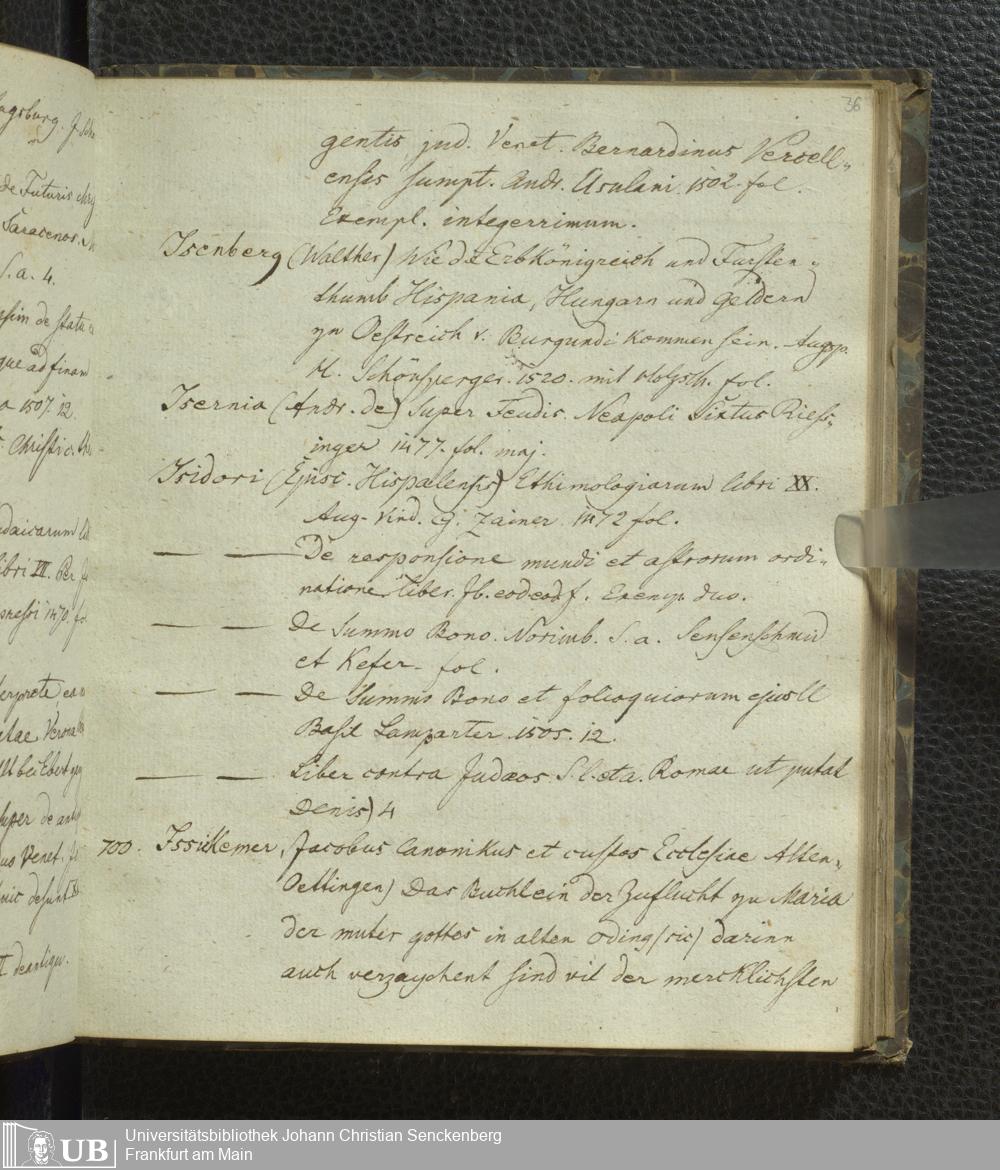 36
gentis jud. Venet. Bernardinus Vercell-
ensis sumpt. Andr. Asulani 1502. fol.
Exempl. integerrimum.
Isenberg (Walther) Wie die Erbkönigreich und Fursten-
thumb Hispania, Hungarn und Geldern
zu Oestreich v. Burgundi kommen sein. Augsp.
H. Schönsperger. 1520. mit Holzsch. fol.
Isernia (Andr. de) super Feudis. Neapoli Sixtus Riess-
inger 1477. fol. maj.
Isidori (Episc. Hispalensis) Ethimologiarum libri XX.
Aug. Vind. G. Zainer 1472 fol.
— — De responsione mundi et astrorum ordi-
natione liber. Ib. eod eod f. Exemp. duo.
— — De Summo Bono. Norimb. S. a. Sensenschmid
et Kefer. fol.
— — De Summo Bono et soliloquiorum ejus ll
Basil Lamparter 1505. 12.
— — Liber contra Judaeos S. l. et a. Romae ut putat
Denis) 4
700. Issickemer, Jacobus Canonikus et custos Ecclesiae Alten-
Oettingen) Das Buchlein der Zuflucht zu Maria
der muter gottes in alten Oding (sic) darinn
auch verzaychent sind vil der mercklichsten
Augsburg.
de Futuris
Saracenos.
S. a. 4.
de statu
que ad finem
1507. 12
Christi
udaicarum
libri III. Per
pressi 1470.
terprete,
Venet.
UB
Universitätsbibliothek Johann Christian Senckenberg
Frankfurt am Main